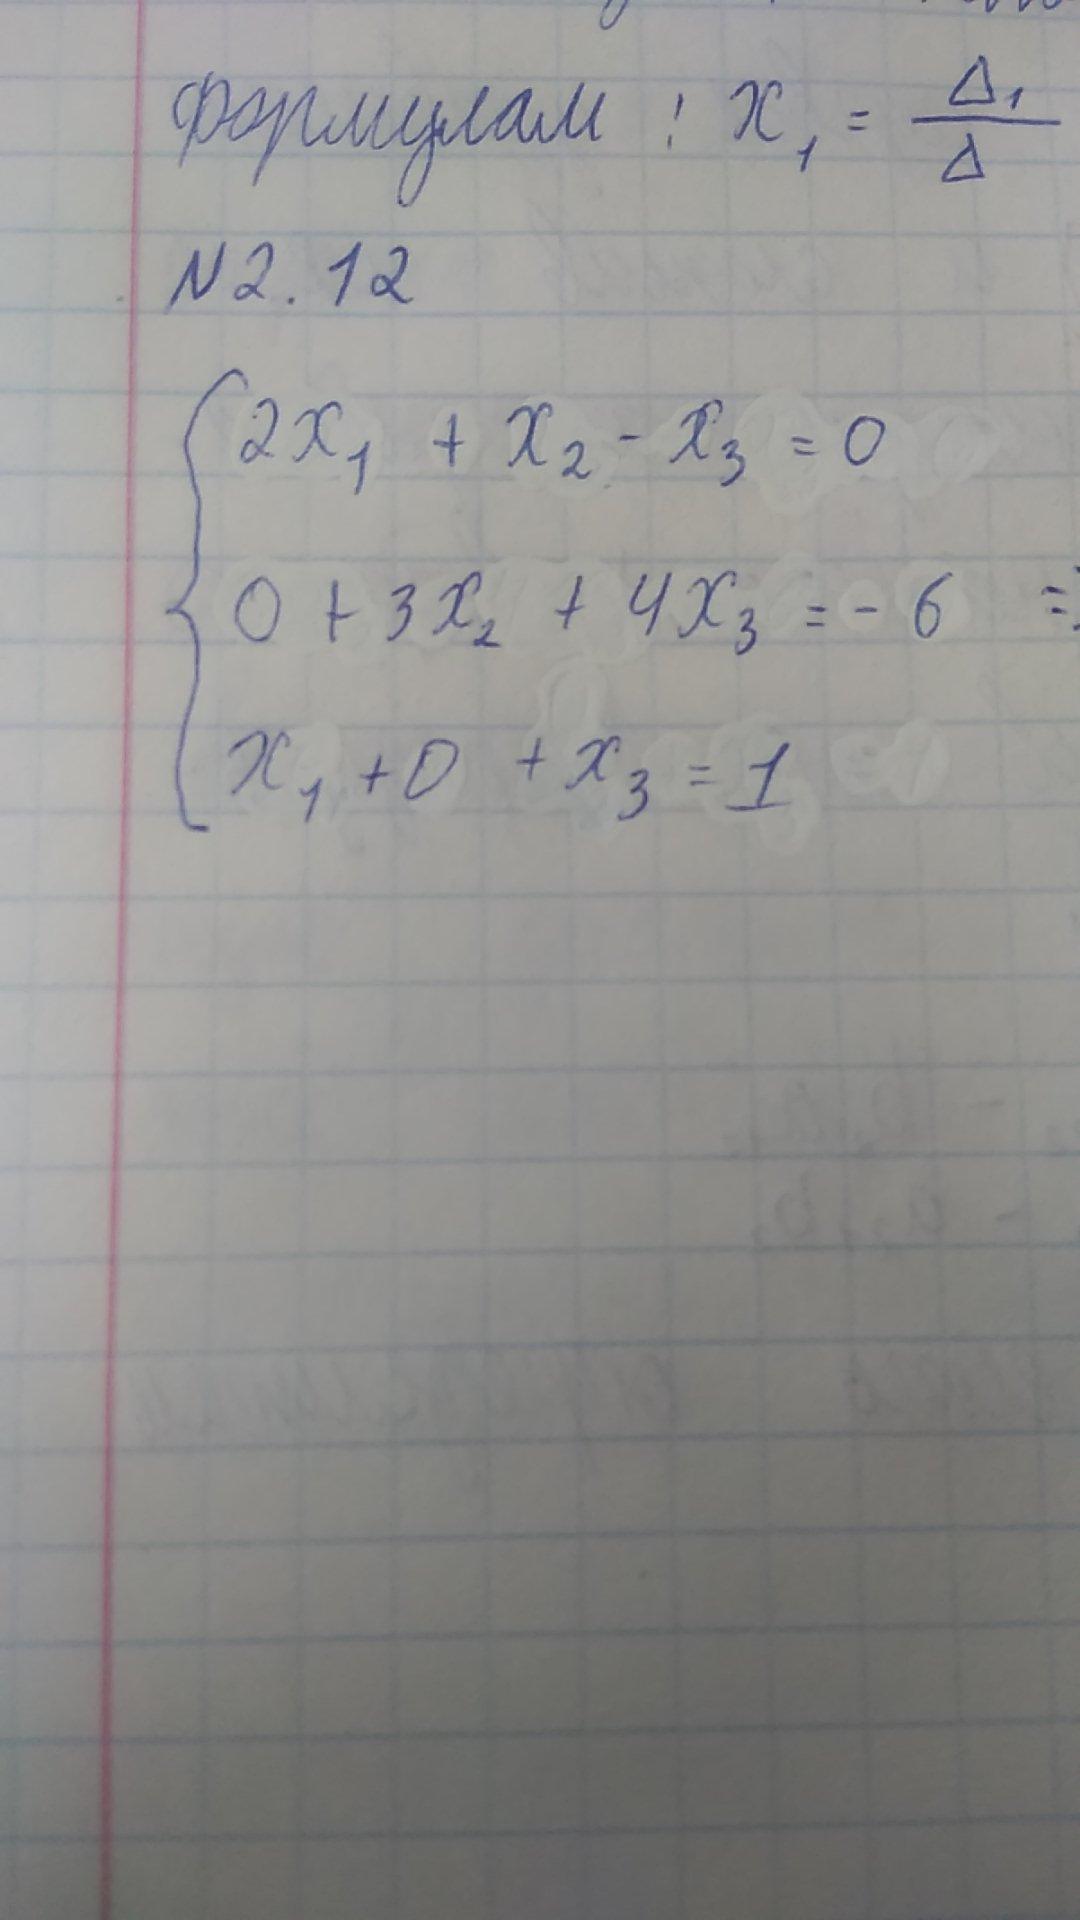 формулам: x₁ = Δ₁/Δ
N2.12
2x₁ + x₂ - x₃ = 0
0 + 3x₂ + 4x₃ = - 6 =>
x₁ + 0 + x₃ = 1